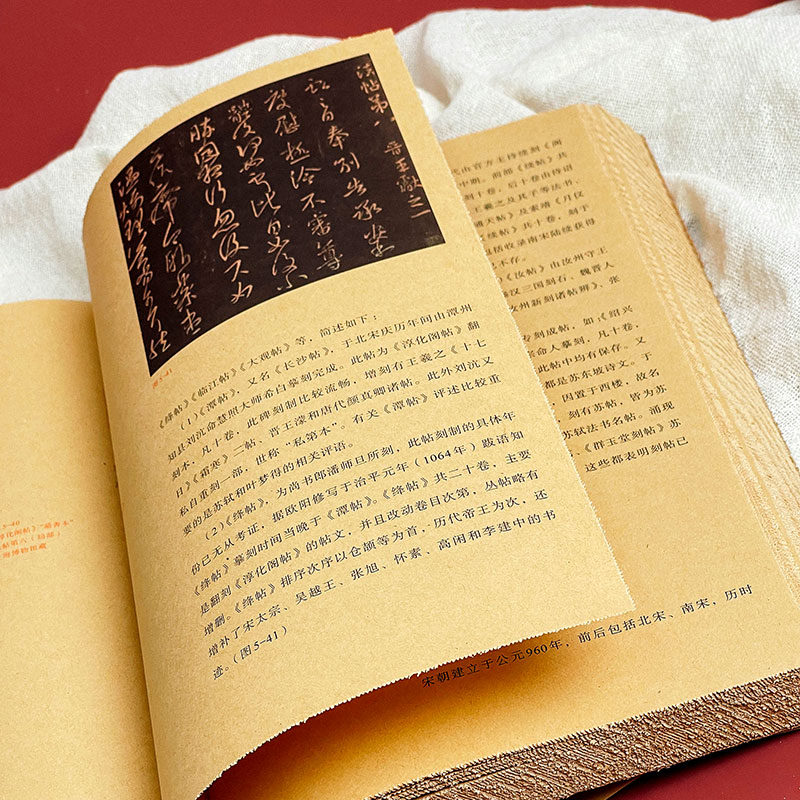 5-40
帖第六（局部）
海博物馆藏
法帖第
晋王献之二
图5-41
《绛帖》《临江帖》《大观帖》等，简述如下：
（1）《潭帖》，又名《长沙帖》，于北宋庆历年间由潭州
知县刘沆命慧照大师希白摹刻完成。此帖为《淳化阁帖》翻
刻本，凡十卷，此碑刻制比较流畅，增刻有王羲之《十七
日》《霜寒》二帖、晋王濛和唐代颜真卿诸帖。此外刘沆又
私自重刻一部，世称“私第本”。有关《潭帖》评述比较重
要的是苏轼和叶梦得的相关评语。
（2）《绛帖》，为尚书郎潘师旦所刻，此帖刻制的具体年
份已无从考证，据欧阳修写于治平元年（1064年）跋语知
《绛帖》摹刻时间当晚于《潭帖》。《绛帖》共二十卷，主要
是翻刻《淳化阁帖》的帖文，并且改动卷目次第，丛帖略有
增删。《绛帖》排序次序以仓颉等为首，历代帝王为次，还
增补了宋太宗、吴越王、张旭、怀素、高闲和李建中的书
迹。（图5-41）
代由官方主持续刻《阁
中期。前部《绛帖》共
刻十卷，后十卷由待诏
王羲之及其子等法书、
通天帖》及索靖《月仪
续帖》共十卷，刻于
括收录南宋陆续获得
不存。
《汝帖》由汝州守王
汉三国刻石、魏晋人
汝州新刻诸帖辨》，张
专刻成帖，如：《绍兴
命人摹刻，凡十卷，
此帖中均有保存。又
都是苏东坡诗文。于
因置于西楼，故名
刻有苏帖，皆为苏
苏轼法书名帖。涌现
《群玉堂刻帖》苏
这些都表明刻帖已
宋朝建立于公元960年，前后包括北宋、南宋，历时